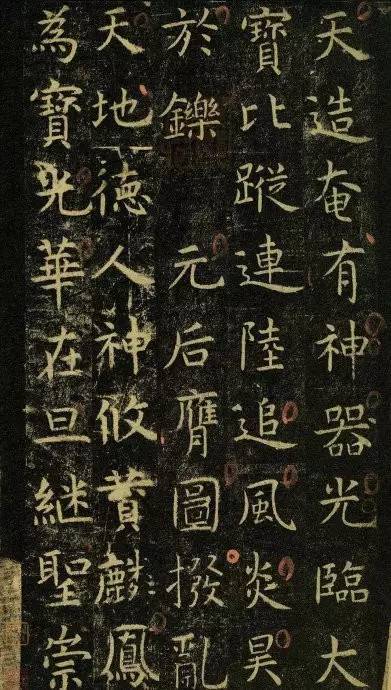 天造奄有神器光臨大
寶比蹤連陸追風炎昊
於鑠　元后膺圖撥亂
天地一德人神攸贊麟鳳
為寶光華在旦繼聖崇